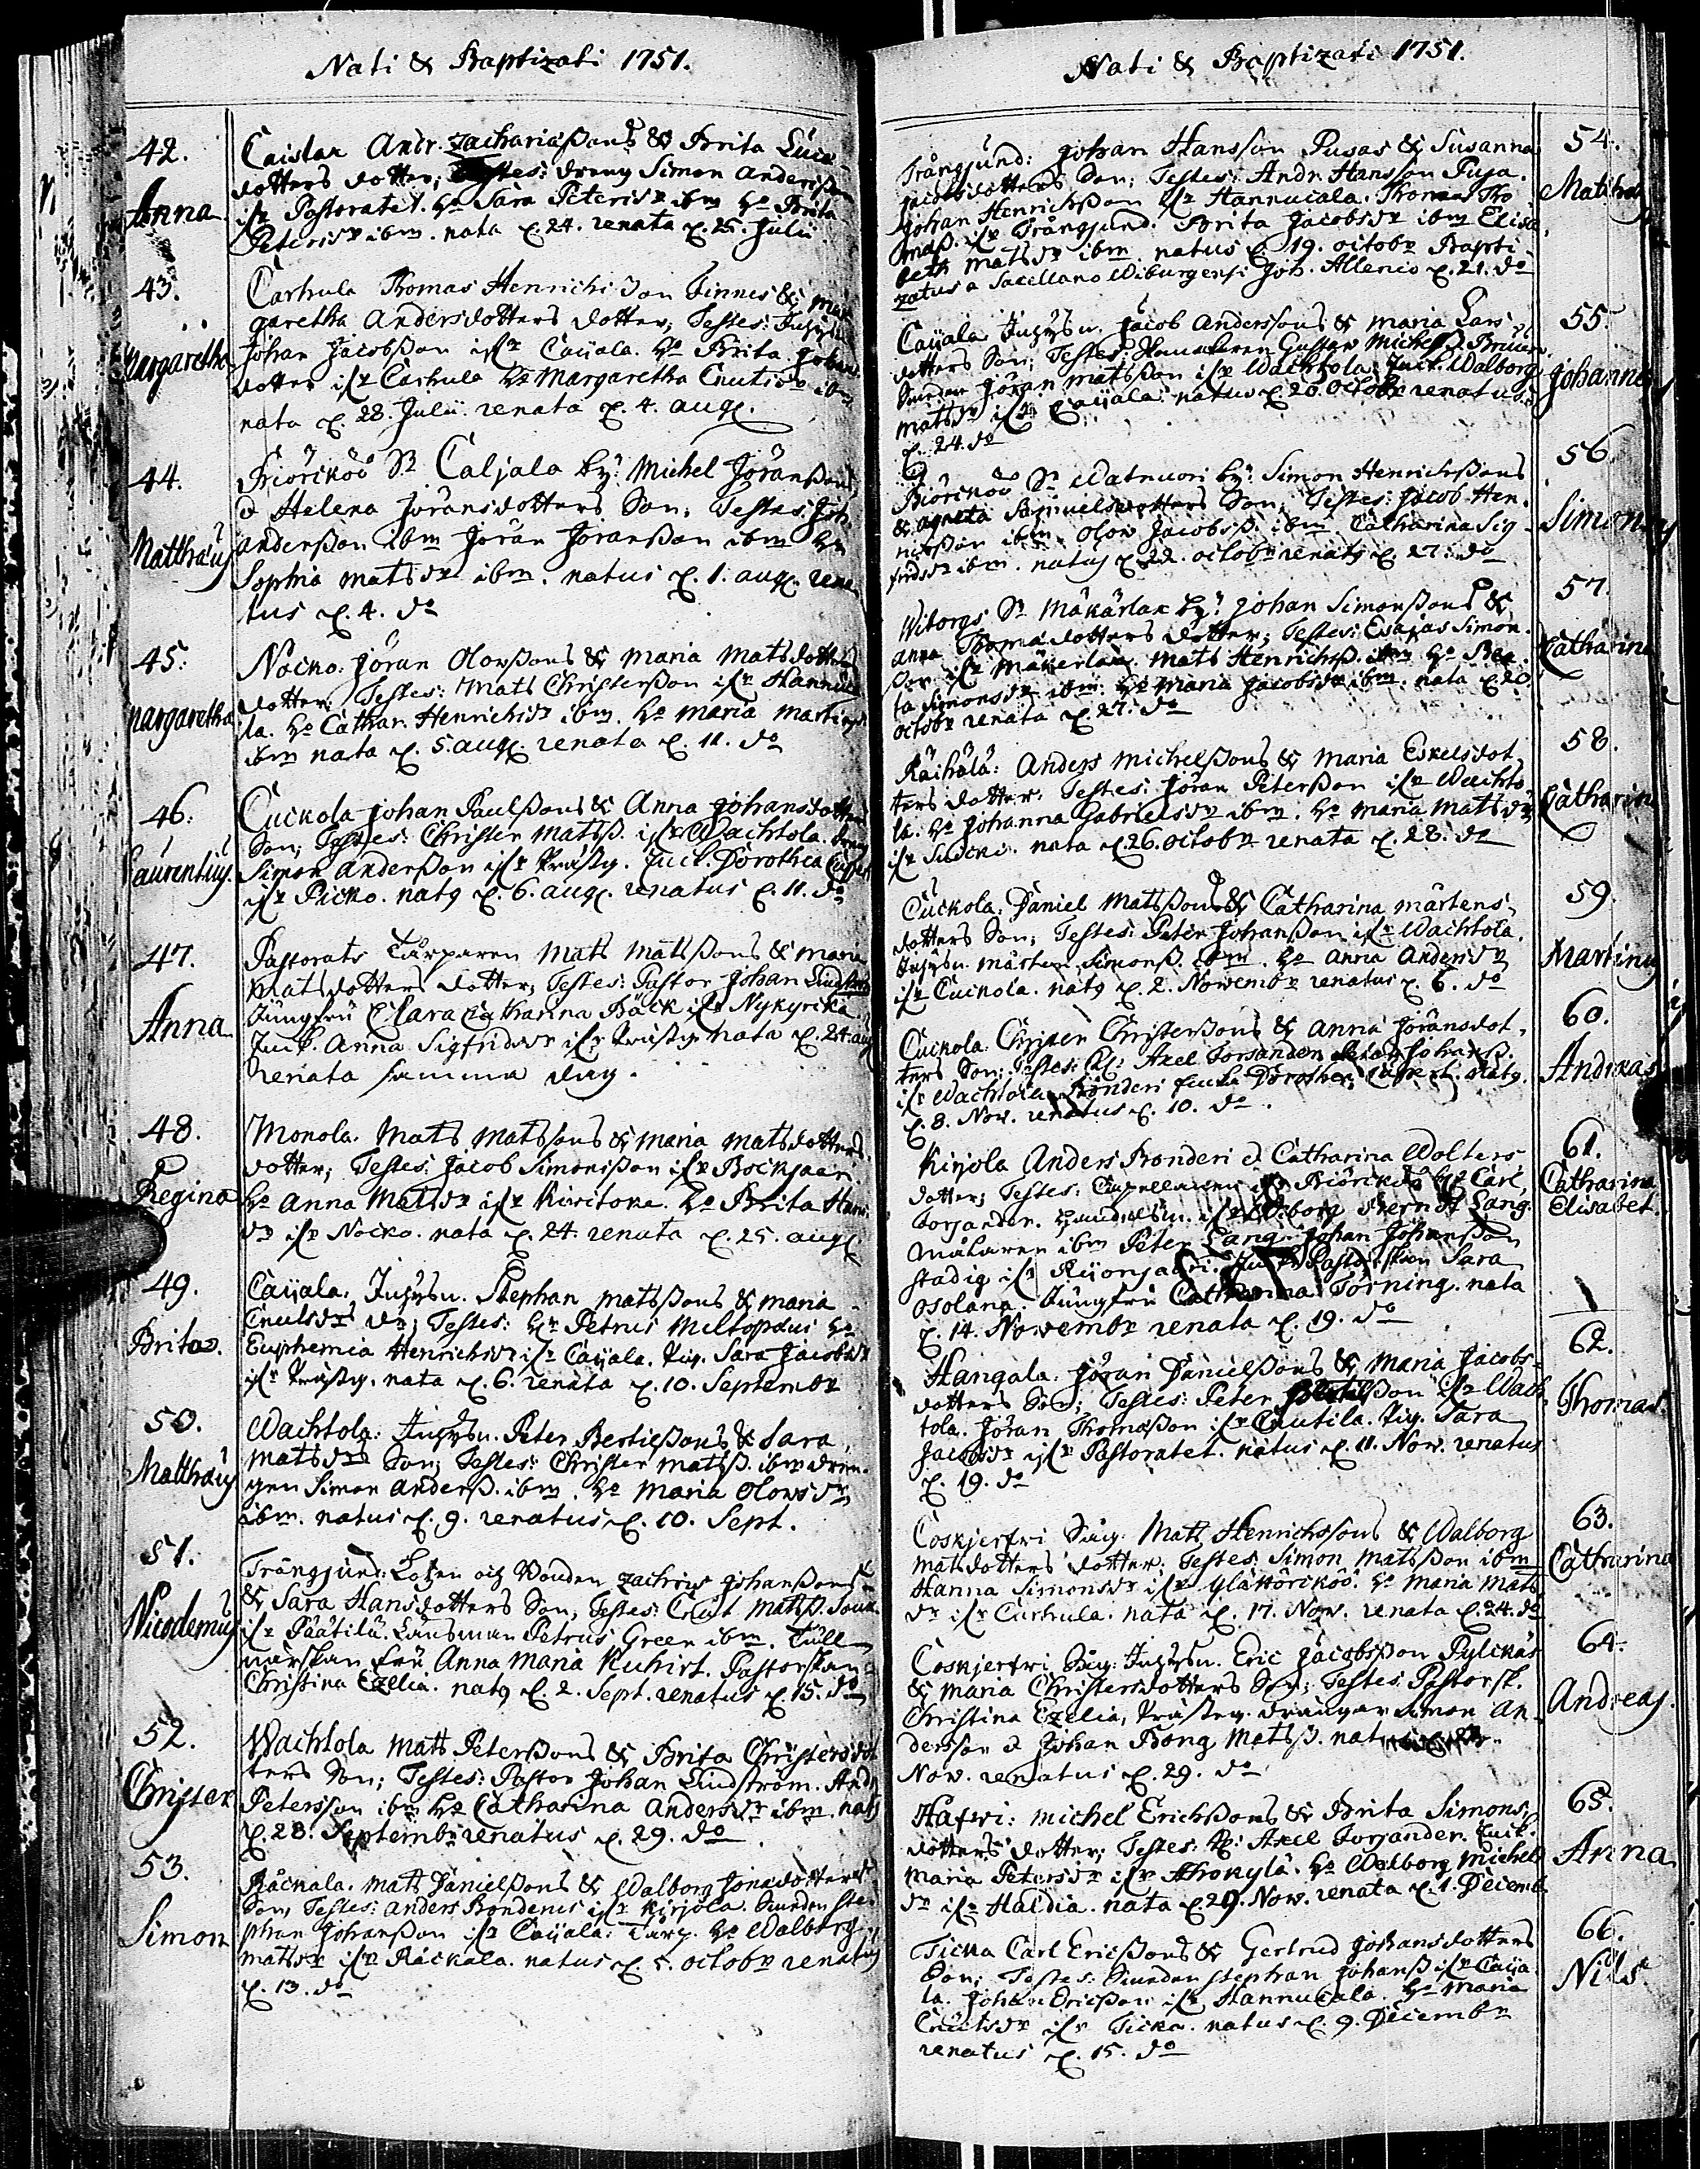 Nati & Baptizati 1751.
42.
Anna
Caislax Andr. Zachariæßons & Brita Luca
dotters dotter; Testes: dreng Simon Anderßon
ifr Pastoratet. Ho Sara Petersdr ibm Ho Brita
Petersdr ibm. nata d. 24. renata d. 25. Julii
43.
Margaretha
Carhula Thomas Henrichsson Finnes & Mar
garetha Andersdotters dotter; Testes:
Johan Jacobßon ifr Caijala. Ho Brita Johans
dotter ifr Carhula Ho Margaretha Cnutsdr ibm
nata d. 28. Julii renata d. 4. aug.
44.
Matthæus
Biörköö Sn Caljala by: Michel Jöranßons
& Helena Jöransdotters Son; Testes: Joh.
Anderßon ibm Jöran Jöranßon ibm Ho
Sophia matsdr ibm. natus d. 1. aug. rena
tus d. 4. do
45.
Margaretha
Nocko. Jöran Olovßons & Maria Matsdotters
dotter; Testes: Mats Christerßon ifr Hannuca
la. Ho Cathar. Henrichsdr ibm. Ho Maria Martinsdr
ibm nata d. 5. aug. renata d. 11. do
46.
Laurentius.
Cuckola Johan Paulßons & Anna Johansdotters
Son; Testes: Christer Matsß. ifr Wachtola. dreng
Simon Anderßon ifr Prästg. Enck. Dorothea
ifr Picko. nat9 d. 6. aug. renatus d. 11. do
47.
Anna
Pastorats Torparen Mats Matsßons & Maria
Matsdotters dotter; Testes: Pastor Johan Lindström
Jungfru Clara Catharina Bäck ifr Nykyrka
Enck. Anna Sigfridsdr ifr Prästg. nata d. 24. aug
renata samma dag.
48.
Regina
Monola. Mats Matssons & Maria Matsdotters
dotter; Testes: Jacob Simonsßon ifr Rockjaeri
Ho Anna Matsdr ifr Kuritoka. Ho Brita Hans
dr ifr Nocko. nata d. 24. renata d. 25. aug.
49.
Brita.
Caijala. Stephan Matsßons & Maria
Cnutsdrs dr; Testes: Hr Petrus Meltopæus Ho
Euphemia Henrichsdr ifr Caijala. Pig. Sara Jacobsdr
ifr Prästg. nata d. 6. renata d. 10. Septembr
50.
Matthæus
Wachtola: Peter Bertilßons & Sara
Matsdrs Son; Testes: Christer Matsß. ibm dren-
gen Simon Anderß. ibm. Ho Maria Olovsdr
ibm. natus d. 9. renatus d. 10. Sept.
51.
Nicodemus
Trångsund: Lotzen och Bonden Zachris Johanßons
& Sara Hansdotters Son; Testes: Cnut Matsß.
ifr Päätilä. Länsman Petrus Green ibm. Tull
närskan fru Anna Maria Kuhirt. Pastorskan
Christina Ezelia. nat9 d. 2. Sept. renatus d. 15. do
52.
Christer
Wachtola Mats Peterßons & Brita Christersdot
ters Son; Testes: Pastor Johan Lindström. And.
Petersson ibm Ho Catharina Andersdr ibm. nat9
d. 28. Septembr renatus d. 29. do
53.
Simon
Räckala. Mats Danielßons & Walborg Jonæ dotters
Son; Testes: Anders Bonderus ifr Kirjola. Ste
phan Johanßon ifr Caijala: Torp. Ho Walborg
Matsdr ifr Räckala. natus d. 5. octobr renatus
d. 13. do
Nati & Baptizati 1751.
54.
Matthæus
Trångsund: Johan Hansson Pusas & Susanna
Jacobsdotters Son; Testes: Andr. Hansson Pusa.
Johan Henrichßon ifr Hannucala. Thomas Tho
maß. ifr Trångsund. Brita Jacobsdr ibm Elisa
beth Matsdr ibm. natus d. 19. octobr Bapti-
zatus a Sacellano Wiburgensi Joh. Allenio d. 21. do
55.
Johannes
Caijala Jacob Anderssons & Maria Lars
dotters Son; Testes: Gustav Michelß.
Jöran Matsßon ifr Wachtola. Enck. Walborg
Matsdr ifr Caijala. natus d. 20. Octobr renatus
d. 24. do
56.
Simon
Biörköö Sn Watnuori by: Simon Henrichßons
& Agneta Samuelsdotters Son; Testes: Jacob Hen-
richßon ibm. Olov Jacobsß. ibm Catharina Sig-
fridsdr ibm. natus d. 22. octobr renat9 d. 27. do
57.
Catharina
Wiborgs Sn Mäkärlax by: Johan Simonßons &
Anna Thomædotters dotter; Testes: Esajas Simon-
ßon ifr Mäkerlax. Mats Henrichß. ibm Ho Bea
ta Simonsdr ibm. Ho Maria Jacobsdr ibm. nata d. 20
octobr renata d. 27. do
58.
Catharina
Räihälä: Anders Michelßons & Maria Eskelsdot
ters dotter. Testes: Jöran Peterßon ifr Wachto
la. Ho Johanna Gabrielsdr ibm. Ho Maria Matsdr
ifr Suocki. nata d. 26. octobr renata d. 28. do
59.
Martinus
Cuckola. Daniel Matsßons & Catharina Mårtens
dotters Son; Testes: Peter Johanßon ifr Wachtola.
Mårten Simonß. ibm. Ho Anna Andersdr
ifr Cuckola. nat9 d. 2. Novembr renatus d. 6. do
60.
Andreas
Cuckola. Christer Christerßons & Anna Jöransdot-
ters Son; Testes: Axel Forsander Johanß.
ifr Wachtola Bonderi Enck. Dorothea nat9.
d. 8. Nov. renatus d. 10. do.
61.
Catharina
Elisabet.
Kirjola Anders Bonderi & Catharina Wolters
dotter; Testes: Capellanen ifr Biörkö Hr Carl
Forsander. ifr Wiborg Berndt Lang.
Målaren ibm Peter Lang. Johan Johanßon
stadig ifr Kijonjaeri. Pastorskan Sara
Osolana. Jungfru Catharina Törning. nata
d. 14. Novembr renata d. 19. do
62.
Thomas
Hangala. Jöran Danielßons & Maria Jacobs-
dotters Son; Testes: Peter ßon ifr Wach
tola. Jöran Thomaßon ifr Cnutila. Pig. Sara
Jacobsdr ifr Pastoratet. natus d. 11. Nov. renatus
d. 19. do
63.
Catharina
Coskjerfvi Säg. Matt Henrichssons & Walborg
Matsdotters dotter: Testes: Simon Matsßon ibm
Hanna Simonsdr ifr Glättörkööö. Ho Maria Mats
dr ifr Curhula. nata d. 17. Nov. renata d. 24. do
64.
Andreas.
Coskjerfvi Säg: Eric Jacobsson Pylckäs
& Maria Christersdotters Son; Testes: Pastorsk.
Christina Ezelia, Prästeg. drängar Simon An-
dersson & Johan Bong Matsß. nat
Nov. renatus d. 29. do
65.
Anna
Hafwi: Michel Erichßons & Brita Simons
dotters dotter; Testes: Axel Forsander. Enck.
Maria Petersdr ifr Honkylä. Ho Walborg Michels
dr ifr Haldia. nata d. 29. Nov. renata d. 1. Decemb
66.
Nils
Ticka Carl Ericßons & Gertrud Johansdotters
Son; Testes: Stephan Johanß. ifr Caija
la. Johan Ericßon ifr Hannucala. Ho Maria
Cnutsdr ifr Ticka. natus d. 9. Decembr
renatus d. 15. do